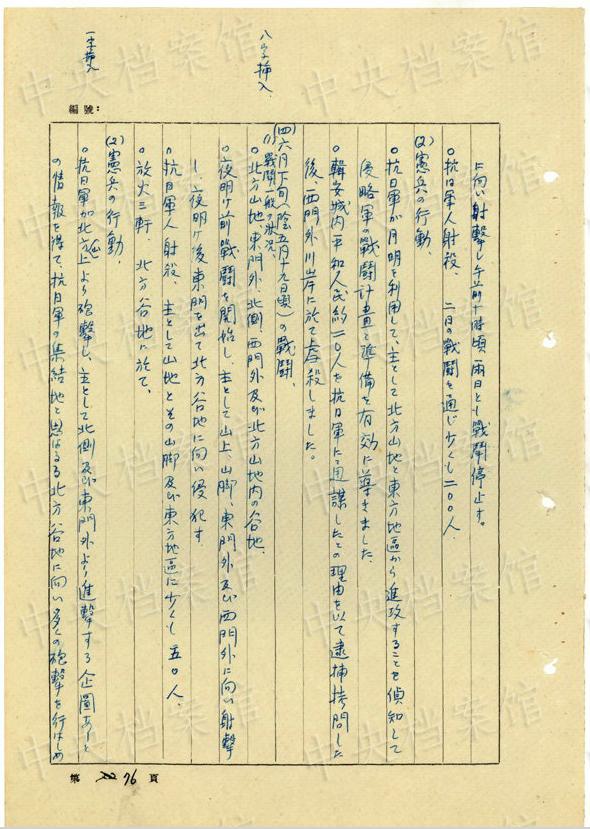 八字挿入
一字挿入
編號:
に向い射撃し午前十時頃両日とも戦闘停止す。
○抗日軍人射殺、二日の戦闘を通じ少くも二〇〇人、
(2)憲兵の行動、
○抗日軍が月明を利用して、主として北方山地と東方地區から進攻することを偵知して
侵略軍の戦闘計畫と準備を有効に導きました、
○韓安城内平和人民約二〇人を抗日軍に通謀したとの理由を以て逮捕拷問した
後、西門外川岸に於て虐殺しました。
(四)六月下旬(陰五月十九日頃)の戰闘、
(1)戰闘一般の状況、
○北方山地、東門外、北側、西門外及び北方山地内の谷地、
○夜明け前戰闘を開始し、主として山上、山脚、東門外及び西門外に向い射撃
し、夜明け後東門を出て北方谷地に向い侵犯す、
○抗日軍人射殺、主として山地とその山脚及び東方地區に少くも五〇人、
○放火三軒、北方谷地に於て、
(2)憲兵の行動、
○抗日軍が北方山上より砲撃し、主として北側及び東門外より進撃する企圖ありと
の情報を得て、抗日軍の集結地と思はるる北方谷地に向い多くの砲撃を行はしめ
第 76 頁
中央档案馆